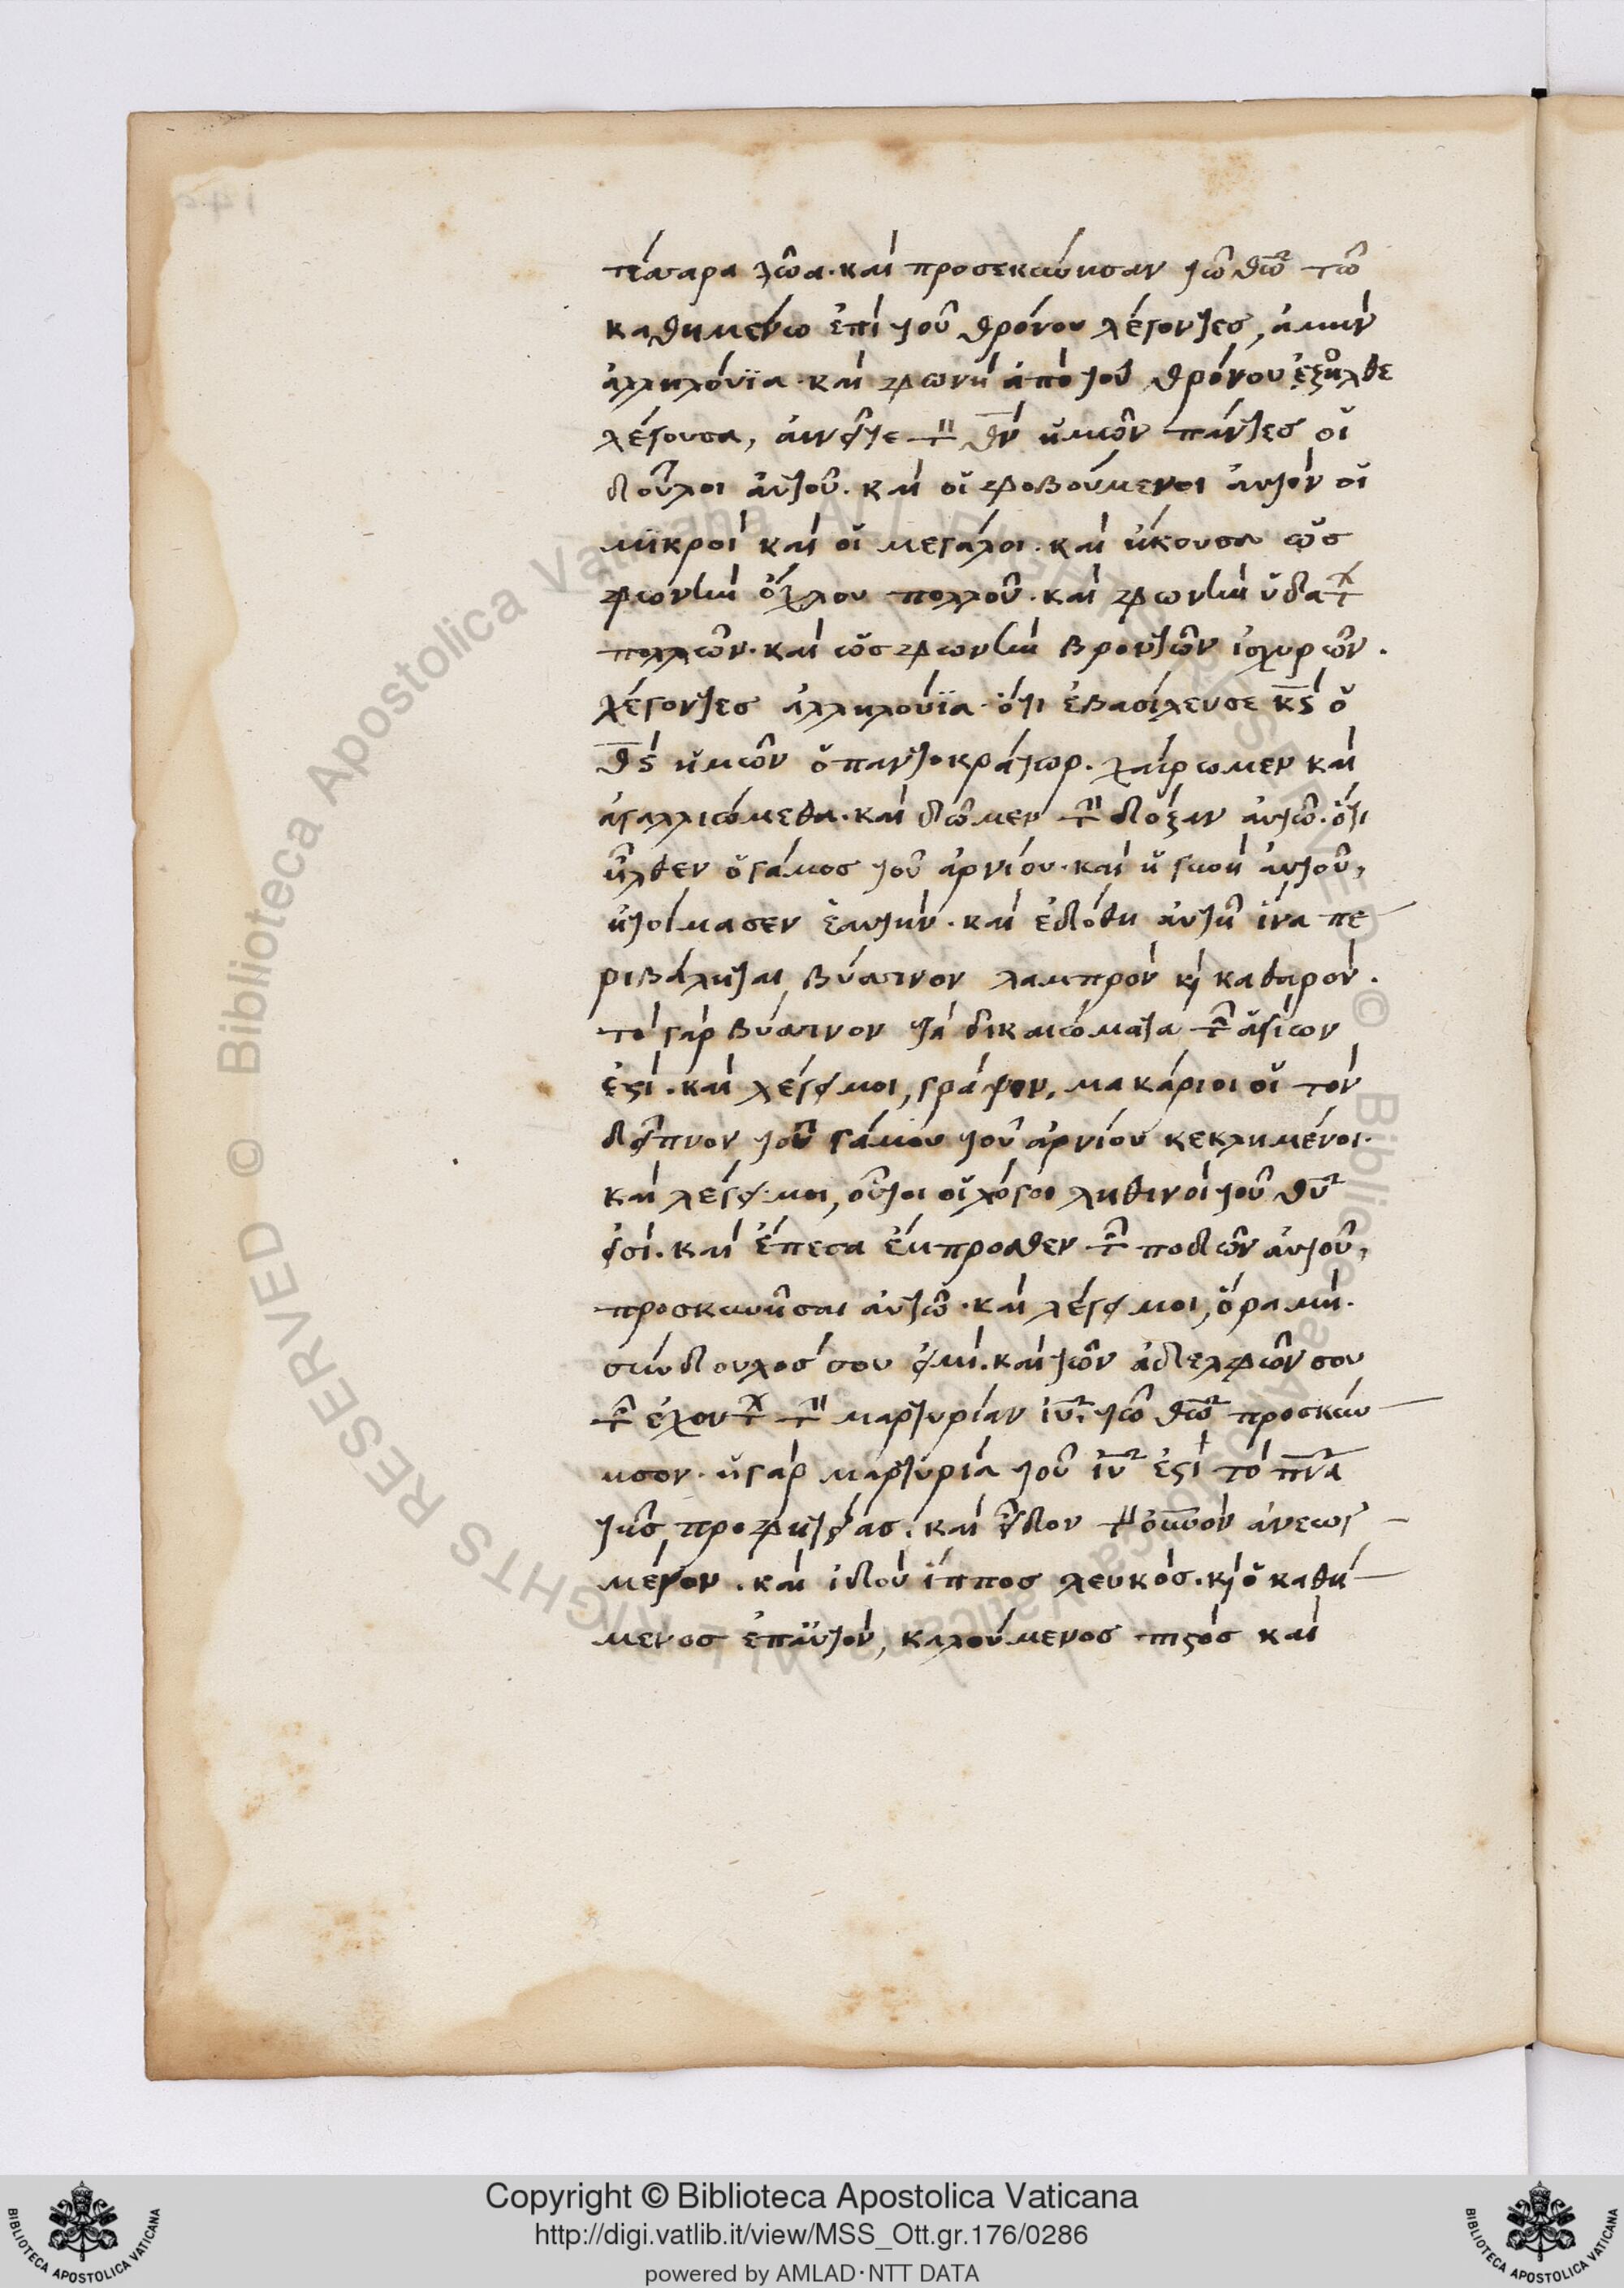 τέσσαρα ζῶα. καὶ προσεκύνησαν τῶ θῶ τῶ
καθημένω ἐπὶ τοῦ θρόνου λέγοντες, ἀμὴν
ἀλληλούϊα. καὶ φωνὴ ἀπὸ τοῦ θρόνου ἐξῆλθε
λέγουσα, αἰνεῖτε τὸν θν ἡμῶν πάντες οἱ
δοῦλοι αὐτοῦ. καὶ οἱ φοβούμενοι αὐτὸν οἱ
μικροὶ καὶ οἱ μεγάλοι. καὶ ἤκουσα ὡς
φωνὴν ὄχλου πολλοῦ. καὶ φωνὴν ὑδάτων
πολλῶν. καὶ ὡς φωνὴν βροντῶν ἰσχυρῶν.
λέγοντες ἀλληλούϊα. ὅτι ἐβασίλευσε κς ὁ
θς ἡμῶν ὁ παντοκράτωρ. χαίρωμεν καὶ
ἀγαλλιώμεθα. καὶ δῶμεν τὴν δόξαν αὐτῶ. ὅτι
ἦλθεν ὁ γάμος τοῦ ἀρνίου. καὶ ἡ γυνὴ αὐτοῦ,
ἡτοίμασεν ἑαυτὴν. καὶ ἐδόθη αὐτῆ ἵνα πε
ριβάληται βύσσινον λαμπρὸν κὶ καθαρὸν.
τὸ γὰρ βύσσινον τὰ δικαιώματα τῶν ἁγίων
ἐστὶ. καὶ λέγει μοι, γράψον, μακάριοι οἱ τὸν
δεῖπνον τοῦ γάμου τοῦ ἀρνίου κεκλημένοι.
καὶ λέγει μοι, οὗτοι οἱ λόγοι ληθινοὶ τοῦ θυ
εἰσὶ. καὶ ἔπεσα ἔμπροσθεν τῶν ποδῶν αὐτοῦ,
προσκυνῆσαι αὐτῶ. καὶ λέγει μοι, ὅρα μὴ.
σύνδουλος σου εἰμὶ. καὶ τῶν ἀδελφῶν σου
τῶν ἐχόντων τὴν μαρτυρίαν ιυ. τῶ θῶ προσκύ
νησον. ἡ γὰρ μαρτυρία τοῦ ιυ ἐστὶ τὸ πνα
τῆς προφητείας. καὶ εἶδον τὸν οὐνον ἀνεωγ
μένον. καὶ ἰδοὺ ἵππος λευκὸς. κὶ ὁ καθή
μενος ἐπ' αὐτὸν, καλούμενος πιστὸς καὶ
Copyright © Biblioteca Apostolica Vaticana
http://digi.vatlib.it/view/MSS_Ott.gr.176/0286
powered by AMLAD·NTT DATA